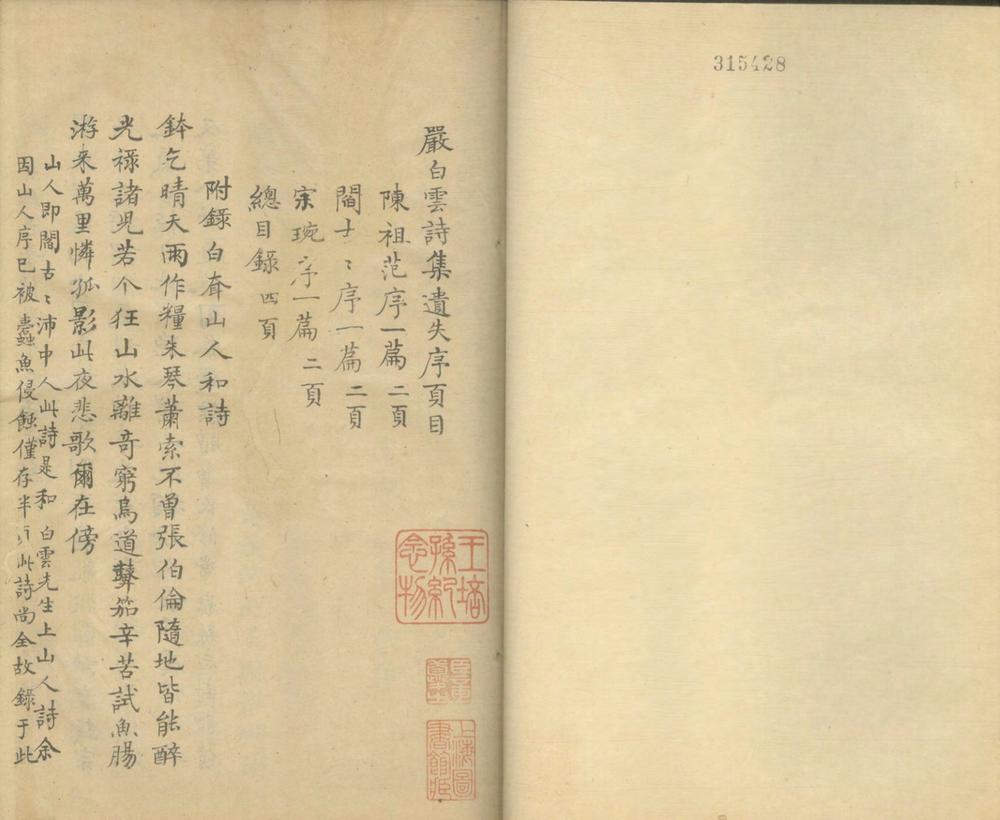 315428
嚴白雲詩集遺失序頁目
陳祖范序一篇 二頁
閻士〻序一篇 二頁
宗琬序一篇 二頁
總目錄 四頁
附錄白耷山人和詩
鉢乞晴天雨作糧朱琴蕭索不曾張伯倫隨地皆能醉
光祿諸児若个狂山水離奇窮鳥道鼙笳辛苦試魚腸
游来萬里憐孤影此夜悲歌爾在傍
山人即閻古〻沛中人此詩是和 白雲先生上山人詩余
因山人序已被蠹魚侵蝕僅存半 此詩尚全故錄于此
王培孫紀念物
上海圖書館藏